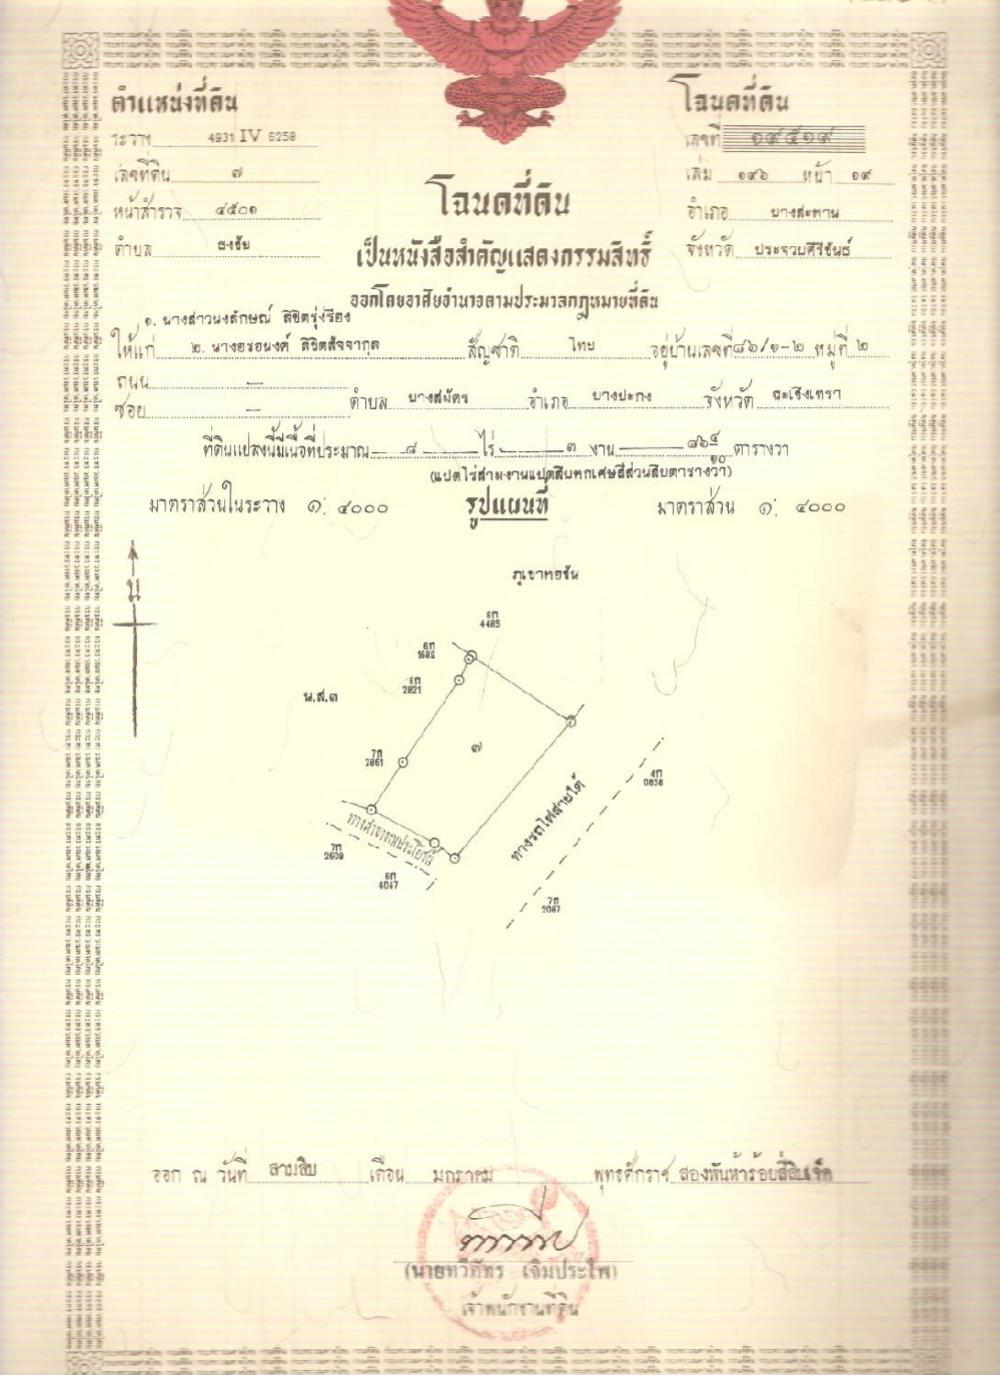 ตำแหน่งที่ดิน
โฉนดที่ดิน
ระวาง 4931 IV 6258
เลขที่ ๑๙๕๑๙
เลขที่ดิน ๗
เล่ม ๑๙๖ หน้า ๑๙
หน้าสำรวจ ๔๕๐๑
โฉนดที่ดิน
อำเภอ บางสะพาน
ตำบล ธงชัย
เป็นหนังสือสำคัญแสดงกรรมสิทธิ์
จังหวัด ประจวบคิรีขันธ์
ออกโดยอาศัยอำนาจตามประมวลกฎหมายที่ดิน
๑. นางสาวนงลักษณ์ ลิขิตรุ่งเรือง
ให้แก่ ๒. นางอรอนงค์ ลิขิตสัจจากุล สัญชาติ ไทย อยู่บ้านเลขที่ ๘๖/๑-๒ หมู่ที่ ๒
ถนน —
ซอย — ตำบล บางสมัคร อำเภอ บางปะกง จังหวัด ฉะเชิงเทรา
ที่ดินแปลงนี้มีเนื้อที่ประมาณ ๘ ไร่ ๓ งาน ๘๖ ๔/๑๐ ตารางวา
(แปดไร่สามงานแปดสิบหกเศษสี่ส่วนสิบตารางวา)
มาตราส่วนในระวาง ๑: ๔๐๐๐
รูปแผนที่
มาตราส่วน ๑: ๔๐๐๐
น
ภูเขาทอชัน
6ก
4485
6ก
6ก
2821
น.ส.๓
๗
7ก
2861
4ก
ทางรถไฟสายใต้
ทางสาธารณประโยชน์
7ก
2609
6ก
4047
7ก
2087
ออก ณ วันที่ สามสิบ เดือน มกราคม พุทธศักราช สองพันห้าร้อยสี่สิบเจ็ด
(นายทวีภัทร เจิมประไพ)
เจ้าพนักงานที่ดิน